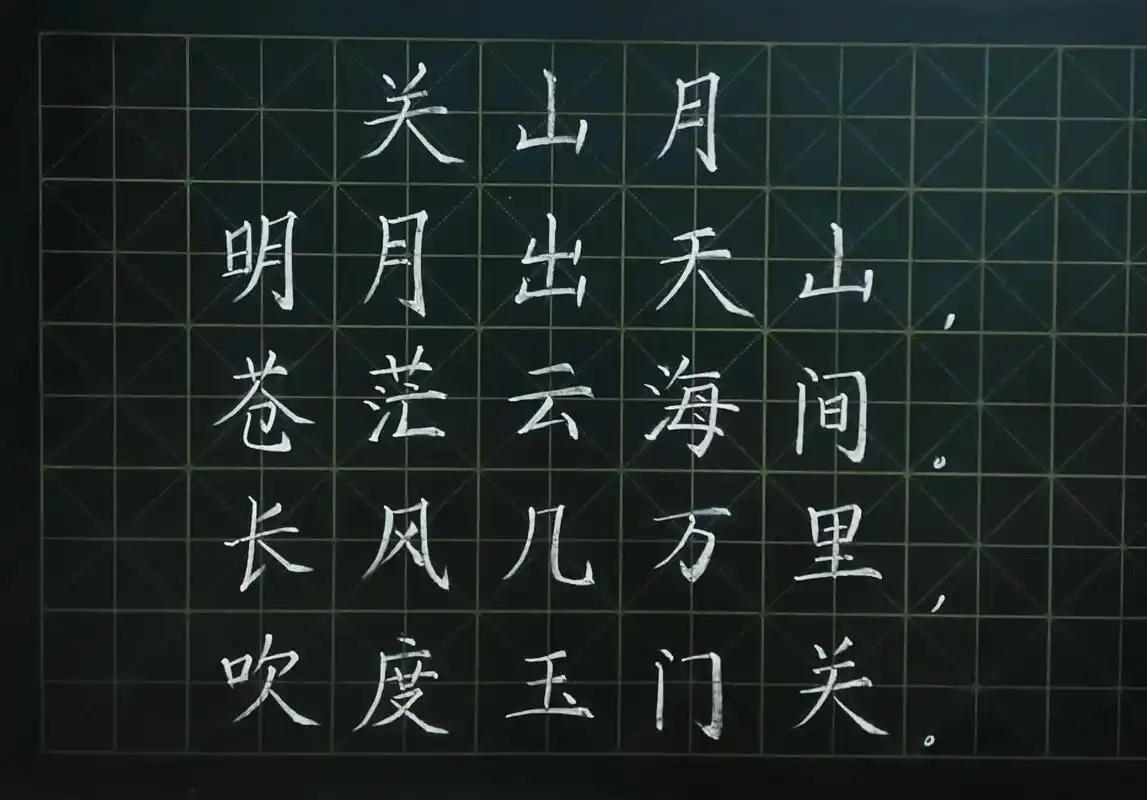 关山月
明月出天山，
苍茫云海间。
长风几万里，
吹度玉门关。